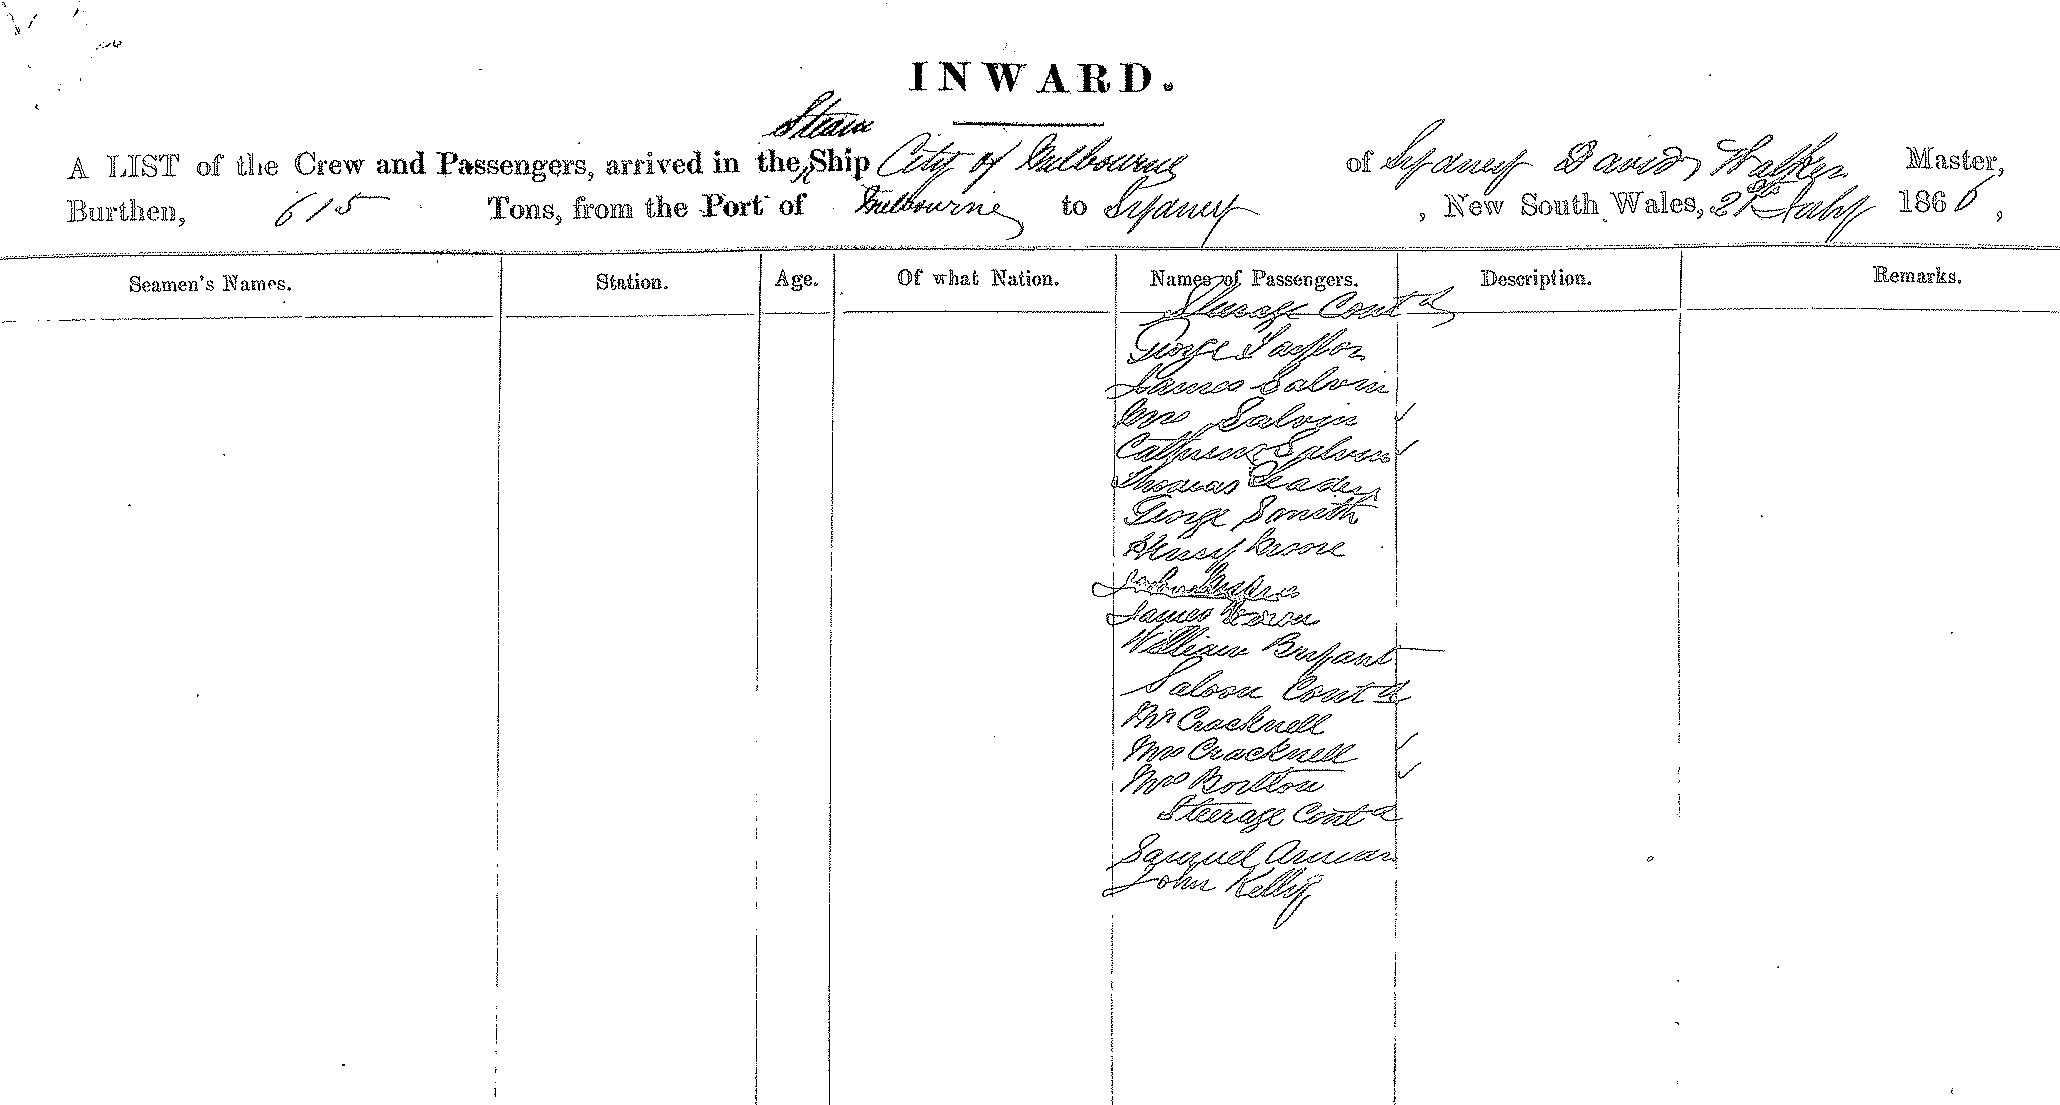 INWARD.
Steam
A LIST of the Crew and Passengers, arrived in the Ship City of Melbourne of Sydney David Walker Master,
Burthen, 615 Tons, from the Port of Melbourne to Sydney, New South Wales, 21st July 1866,
Seamen's Names. Station. Age. Of what Nation. Names of Passengers. Description. Remarks.
Steerage Contd
George Taylor
James Salvin
Mrs Salvin
Catherine Salvin
Thomas
George Smith
Henry Moore
John
James
William Bryant
Saloon Contd
Mr Cracknell
Mrs Cracknell
Mrs Boulton
Steerage Contd
Samuel
John Kelly